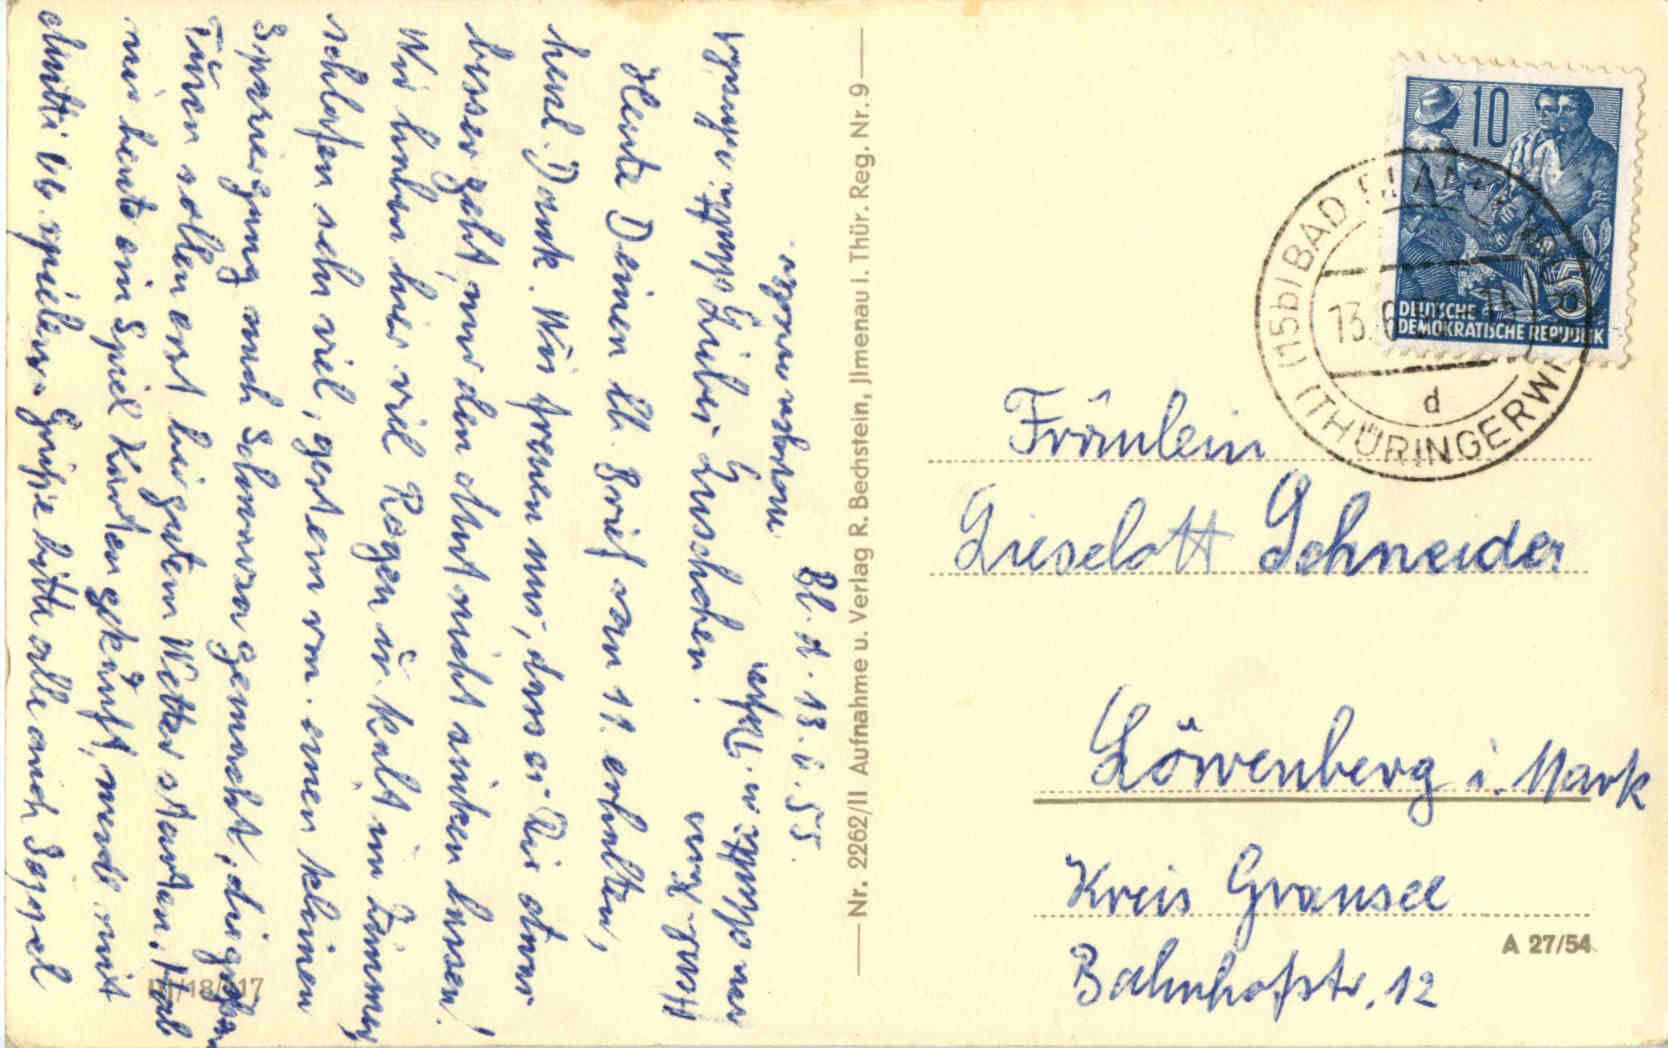 Bl. d. 13.6.55.
Mein liebes Luschchen!
Heute Deinen lb. Brief vom 11. erhalten,
herzl. Dank. Wir freuen uns, dass es Dir etwas
besser geht, nur den Mut nicht sinken lassen!
Wir haben hier viel Regen u. kalt im Zimmer,
schlafen sehr viel, gestern vorm. einen kleinen
Spaziergang nach Schwarza gemacht, die großen
Türen sollen erst bei gutem Wetter starten. Hab
mir heute ein Spiel Karten gekauft, werde mit
Mutti 66 spielen. Grüße bitte alle auch Seppel
Fräulein
Lieselott Schneider
Löwenberg i. Mark
Kreis Gransee
Bahnhofstr. 12
10
5
DEUTSCHE
DEMOKRATISCHE REPUBLIK
(15b) BAD BLANKENBURG
(THÜRINGERW
13.6.
d
Nr. 2262/II Aufnahme u. Verlag R. Bechstein, Jlmenau i. Thür. Reg. Nr. 9
A 27/54